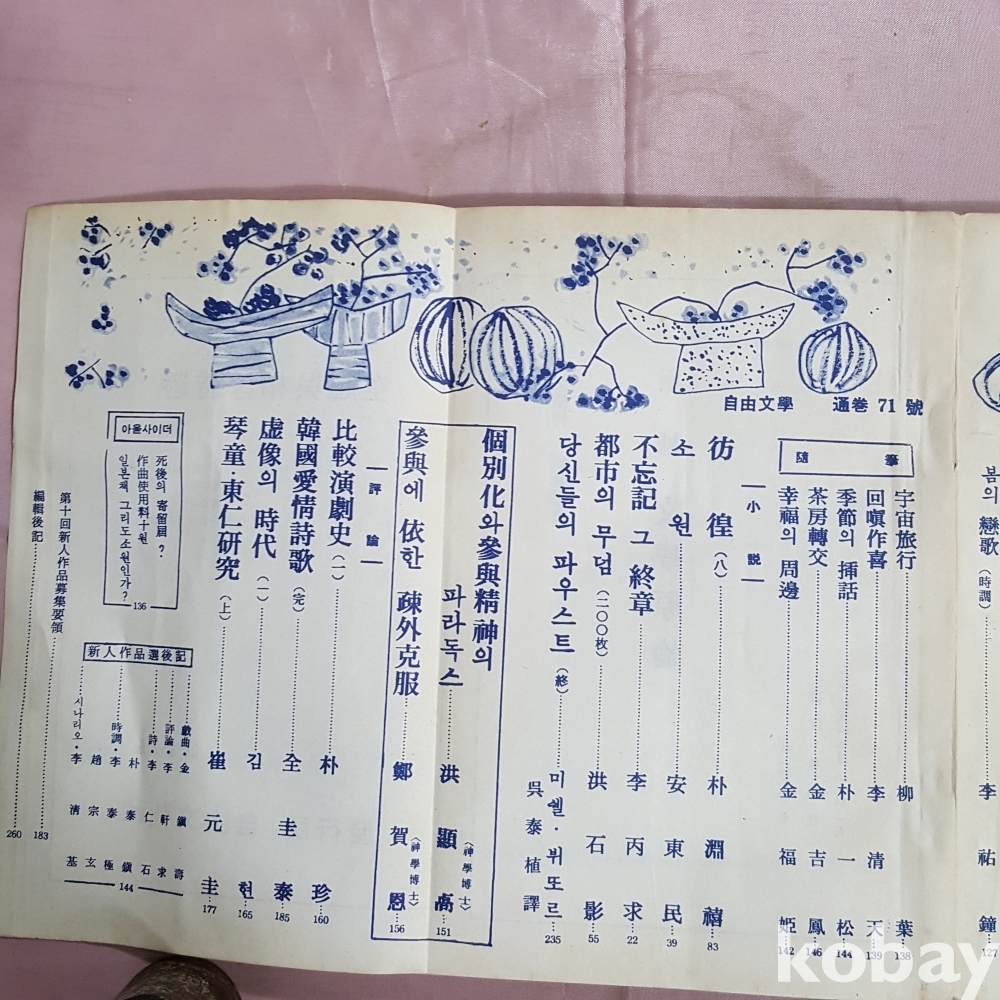 自由文學 通巻 71 號
봄의 戀歌 (時調) 李祐鐘 127
隨筆
宇宙旅行 柳葉 138
回嗔作喜 李清天 139
季節의 揷話 朴一松 144
茶房轉交 金吉鳳 146
幸福의 周邊 金福姬 142
小說
彷徨 (八) 朴淵禧 83
소원 安東民 39
不忘記 그 終章 李丙求 22
都市의 무덤 (二〇〇枚) 洪石影 55
당신들의 파우스트 (終) 미쉘·뷔또르 吳泰植 譯 235
個別化와 參與精神의 파라독스 洪顯卨 (神學博士) 151
參與에 依한 疎外克服 鄭賀恩 (神學博士) 156
評論
比較演劇史 (一) 朴珍 160
韓國愛情詩歌 (完) 全圭泰 185
虛像의 時代 (一) 김현 165
琴童·東仁硏究 (上) 崔元圭 177
아웃사이더
死後의 寄留屆?
作曲使用料十원
일본책 그리도 소원인가?
136
新人作品選後記
戱曲·金鎭壽
評論·李軒求
詩·李仁石
朴泰鎭
時調·李泰極
趙宗玄
시나리오·李淸基
144
第十回新人作品募集要領 183
編輯後記 260
kobay